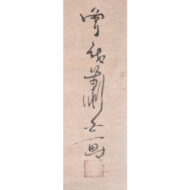 曾我蕭白画